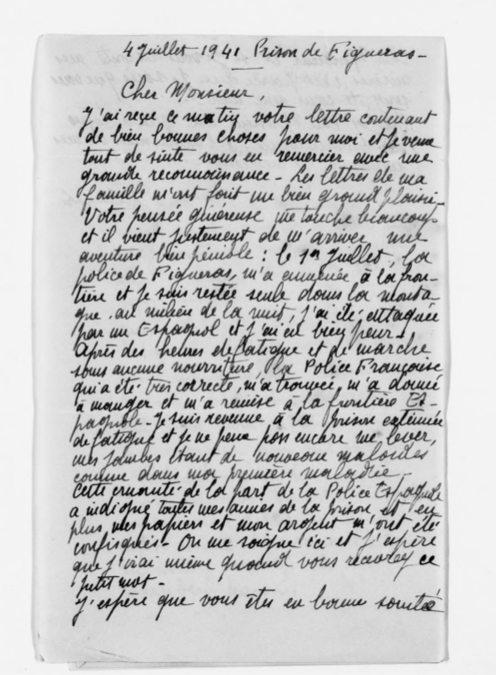 4 Juillet 1941 Prison de Figueras -
Cher Monsieur,
J'ai reçu ce matin votre lettre contenant
de bien bonnes choses pour moi et je veux
tout de suite vous en remercier avec une
grande reconnaissance - Les lettres de ma
famille m'ont fait un bien grand plaisir -
Votre pensée généreuse me touche beaucoup
et il vient justement de m'arriver une
aventure bien pénible : le 1er Juillet, la
police de Figueras, m'a emmenée à la fron-
tière et je suis restée seule dans la monta-
gne. au milieu de la nuit, j'ai été attaquée
par un Espagnol et j'ai eu bien peur -
Après des heures de fatigue et de marche
sans aucune nourriture, la Police Française
qui a été très correcte, m'a trouvée, m'a donné
à manger et m'a remise à la frontière Es-
pagnole - Je suis revenue à la prison exténuée
de fatigue et je ne peux pas encore me lever,
mes jambes étant de nouveau malades
comme dans ma première maladie -
Cette cruauté de la part de la Police Espagnole
a indigné toutes mes amies de la prison et en
plus, mes papiers et mon argent m'ont été
confisqués - On me soigne ici et j'espère
que j'irai mieux quand vous recevrez ce
petit mot -
J'espère que vous êtes en bonne santé